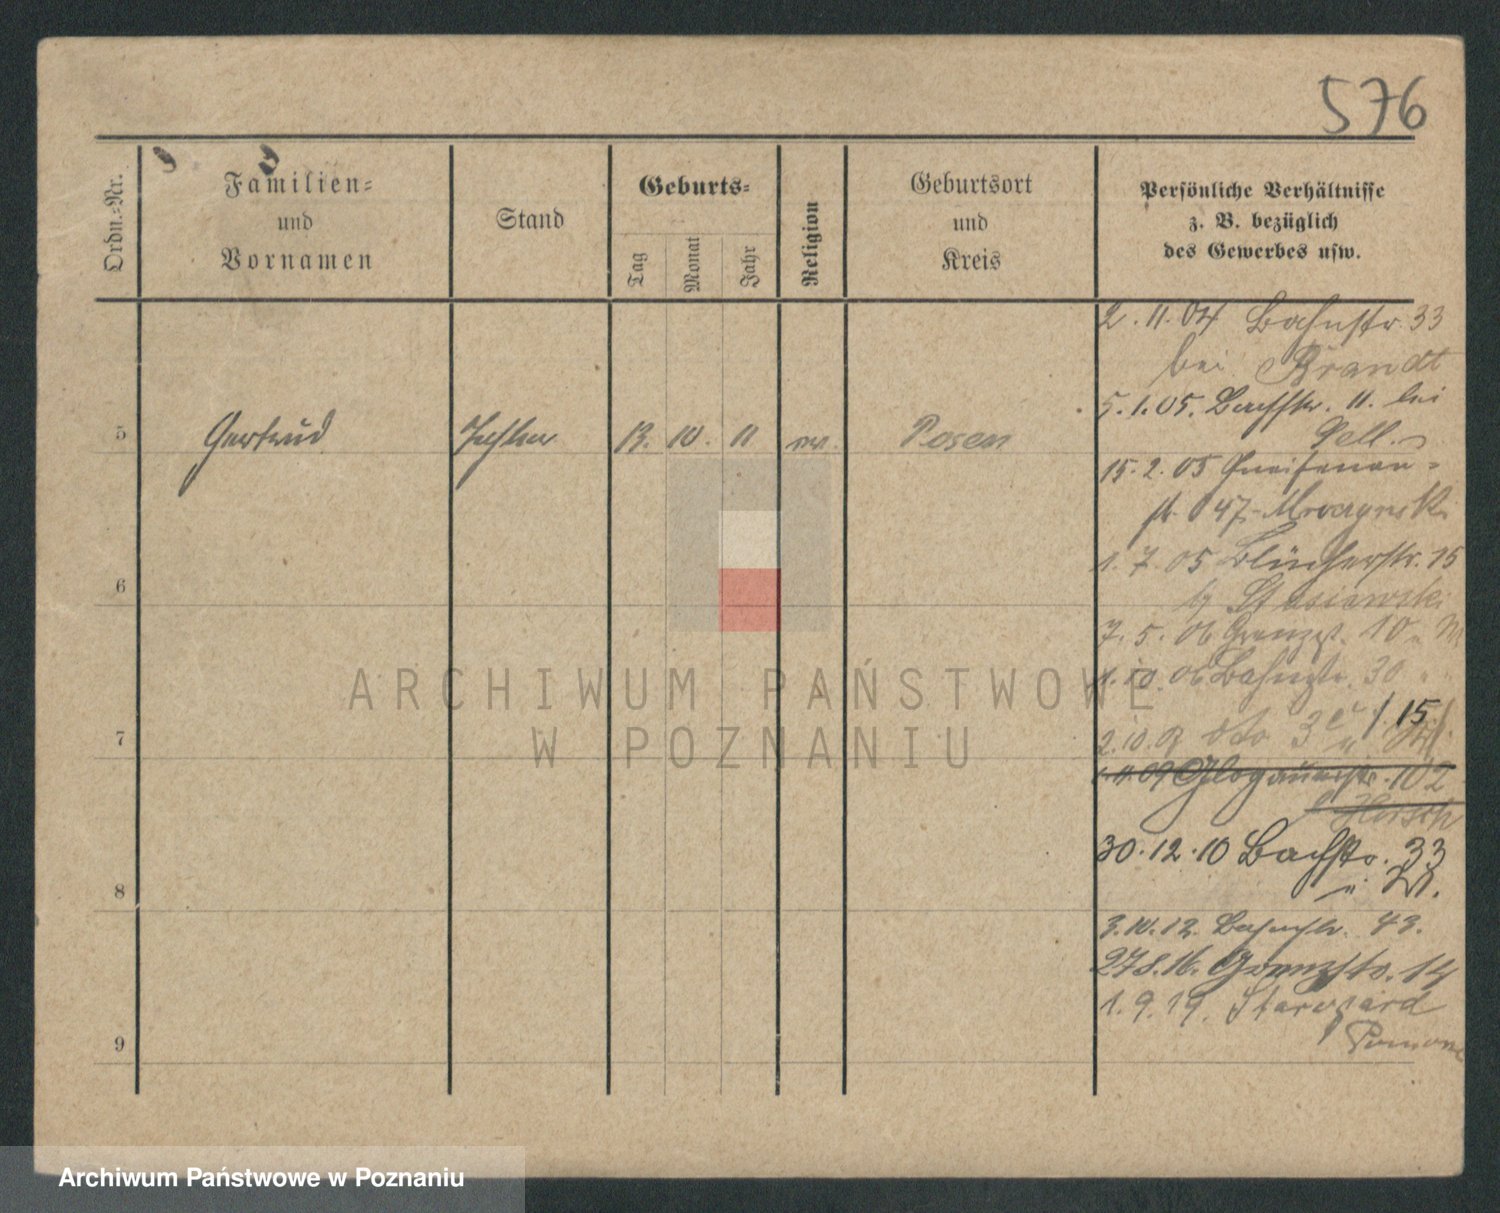 576
Ordn.-Nr.
Familien-
und
Vornamen
Stand
Geburts-
Tag
Monat
Jahr
Religion
Geburtsort
und
Kreis
Persönliche Verhältnisse
z. B. bezüglich
des Gewerbes usw.
2. 11. 04 Bahnstr. 33
bei Brandt
5. 1. 05. Bachstr. 11. bei
Pell.
5 Gertrud Tochter 13. 10. 11 Posen
15. 2. 05 Gneisenau-
str 47
1. 7. 05 Blücherstr. 15
Stasiewski
6
7. 5. 06 Grenzst. 10
1. 10. 06 Bahnstr. 30
15.
2. 10.
7
1. 11. 09 Glogauerstr. 102
Hirsch
30. 12. 10 Bachstr. 33
8
3. 10. 12. Bahnstr. 43.
27 8. 16. Grenzstr. 14
1. 9. 19. Stargard
9 Pomm
ARCHIWUM PAŃSTWOWE
W POZNANIU
Archiwum Państwowe w Poznaniu